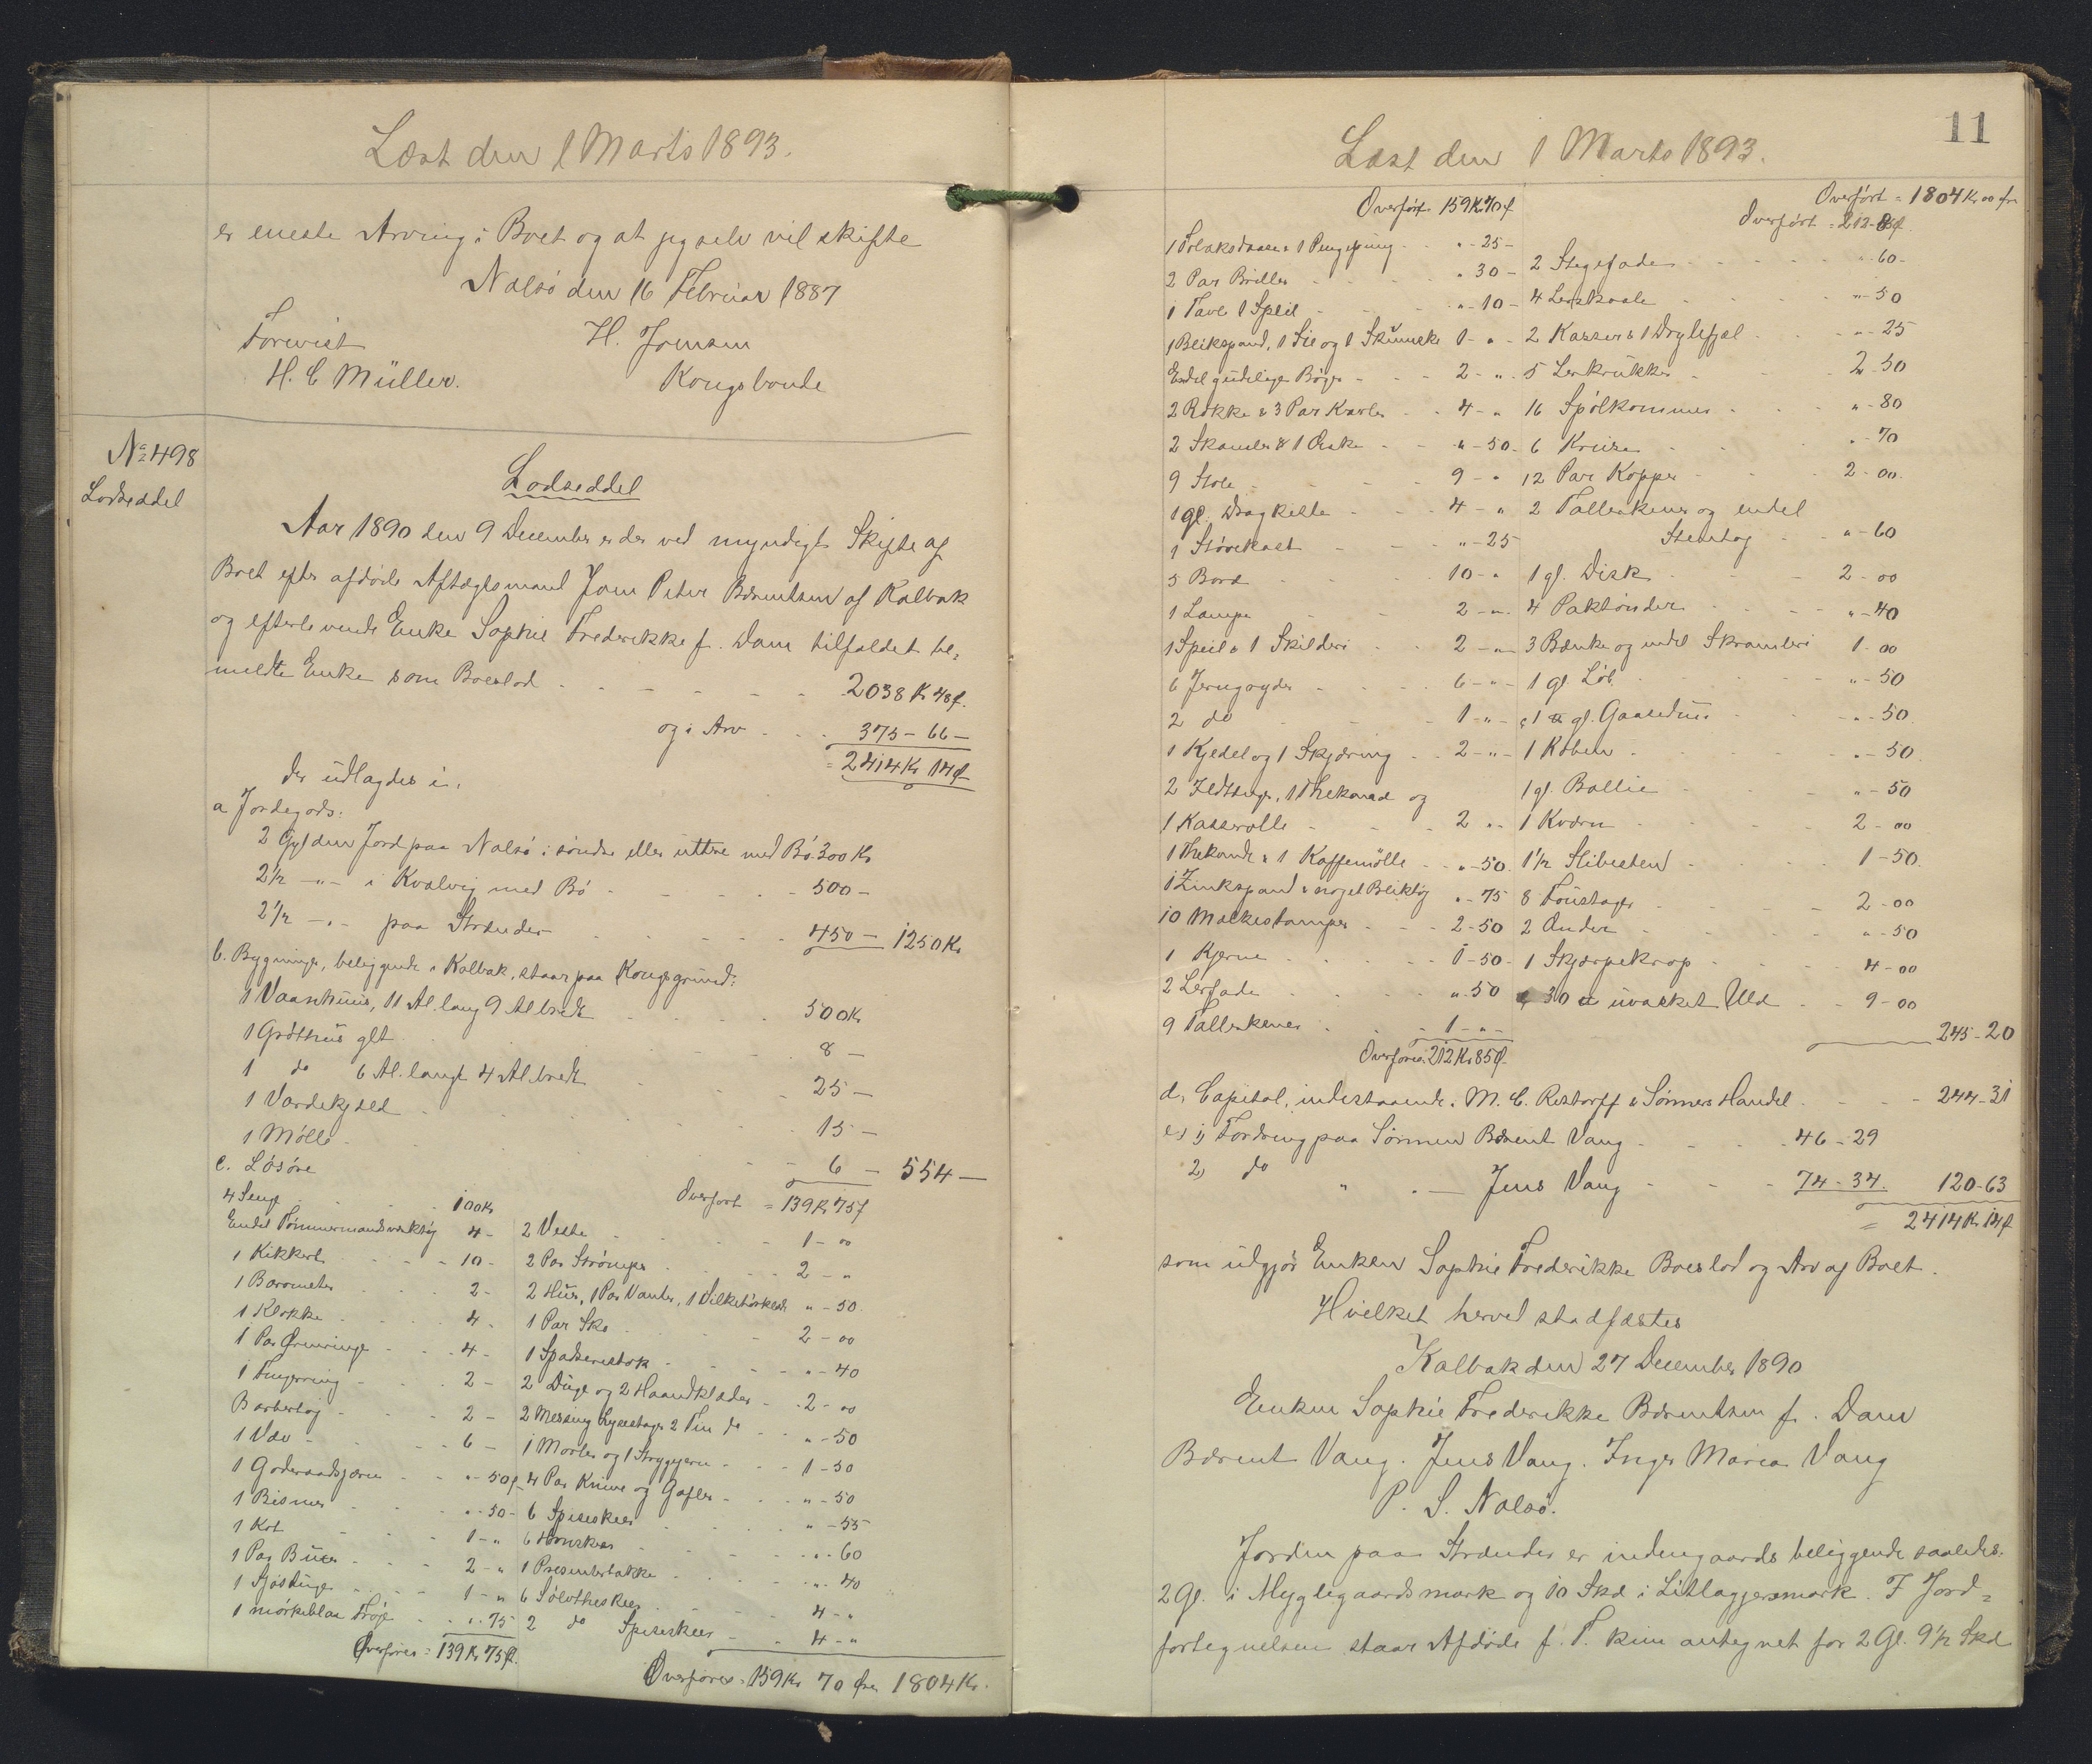 Læst den 1 Marts 1893.
er eneste Arving i Boet og at jeg selv vil skifte
Nolsö den 16 Februar 1887
Forevist H. Joensen
H. C Müller. Kongsbonde
No 498
Lodseddel
Lodseddel
Aar 1890 den 9 December er der ved myndigt Skifte af
Boet efter afdöde Aftægtsmand Joen Peter Bærentsen af Kalbak
og efterlevende Enke Sophie Frederikke f. Dam tilfaldet be-
meldte Enke som Boeslod - - - 2038 Kr 48 ø.
og i Arv - - 375 - 66 -
= 2414 Kr 14 ø
der udlagdes i:
a Jordegods:
2 Gylden Jord paa Nolsö i söndre eller uttre med Bö 300 Kr
2 1/2 - " - i Kvalvig med Bö - - 500 -
2 1/2 - " - paa Strænder - - 450 - 1250 Kr
b. Bygninger, beliggende i Kalbak, staar paa Kongsgrund:
1 Vaanhuus, 11 Al. lang 9 Al bredt - - 500 Kr
1 Gröthus glt - - 8 -
1 do 6 Al. langt 4 Al. bredt - - 25 -
1 Vardekjæld - - 15 -
1 Mölle - - 6 - 554 -
c. Lösöre
4 Senge - - 100 Kr Overfört = 139 Kr 75 ø
Endel Tömmermandsværktöj 4 - 2 Veste - - 1 - 00
1 Kikkert - - 10 - 2 Par Strömper - - 2 - "
1 Barometer - - 2 - 2 Huer, 1 Par Vanter, 1 Silketörklæde " - 50
1 Klokke - - 4 - 1 Par Sko - - 2 - 00
1 Par Örenringe - - 4 - 1 Spadserestok - - " - 40
1 Fingerring - - 2 - 2 Duge og 2 Haandklæder - 2 - 00
Bartertöj - - 2 - 2 Messing Lysestager 2 Tin do - - " - 50
1 Væv - - 6 - 1 Morter og 1 Strygejern - - 1 - 50
1 Goderaadsjern - - " - 50 ø 4 Par Knive og Gafler - - " - 50
1 Bismer - - " - 50 - 6 Spiseskeer - - " - 55
1 Kot - - 1 - " 6 Hornskeer - - " - 60
1 Par Buxer - - 2 - " 1 Presenterbakke - - " - 40
1 Sjöstuge - - 1 - " 6 Sölvtheskeer - - 4 - "
1 mörkeblaa Tröje - - " - 75 2 do Spiseskeer - - 4 - "
Overföres = 139 Kr 75 ø. Overföres = 159 Kr 70 Öre 1804 Kr.
11
Læst den 1 Marts 1893.
Overfört 159 Kr 70 ø Overfört = 1804 Kr 00 øre
Overfört = 212 - 85 ø
1 Tobaksdaase & 1 Pengepung - " - 25 -
2 Par Briller - - " 30 - 2 Stegefade - - " 60 -
1 Tavle 1 Speil - - " - 10 - 4 Lerskaale - - " - 50
1 Blikspand, 1 Sie og 1 Skummeske 1 - " - 2 Kasser & 1 - - " - 25
Endel gudelige Böger - - 2 - " - 5 Lerkrukker - - 2 - 50
2 Rokke & 3 Par Karter - - 4 - " 16 Spölkommer - - " - 80
2 Skamler & 1 Æske - - " - 50 - 6 Kruse - - " - 70
9 Stole - - 9 - " 12 Par Kopper - - 2 - 00
1 gl. Dragkiste - - 4 - " 2 Tallerkener og endel
1 Störekast - - " - 25 Stentöj - - " - 60
5 Bord - - 10 - " 1 gl. Disk - - 2 - 00
1 Lampe - - 2 - " - 4 Paktönder - - " - 40
1 Speil & 1 Skilderi - - 2 - " - 3 Bænke og endel Skramleri 1 - 00
6 Jerngryder - - 6 - " - 1 gl. Löb - - " - 50
2 do - - 1 - " - gl. Gaasedun - - " - 50
1 Kjedel og 1 Skjæring - - 2 - " - 1 Köben - - " - 50
2 1 Thekande og 1 gl. Ballie - - " - 50
1 Kasserolle - - 2 " - 1 Kværn - - 2 - 00
1 Thekande & 1 Kaffemölle - - " - 50 1 1/2 Slibesten - - 1 - 50
1 Zinkspand & noget Bliktöj " - 75 8 Foustager - - 2 - 00
10 Malkestamper - - 2 - 50 2 Ander - - " - 50
1 Kjerne - - 1 - 50 - 1 Skjærpekrop - - 4 - 00
2 Lerfade - - " - 50 30 uvasket Uld - - 9 - 00
9 Tallerkener - - 1 - " - 245 - 20
Overföres 212 Kr 85 ø.
d, Capital, indestaaende i M. C. Restorff & Sönners Handel - - 244 - 31
e, 1) Fordring paa Sönnen Bærent Vang - - 46 - 29
2) do " " - Jens Vang - - 74 - 34. 120 - 63
= 2414 Kr 14 ø
som udgjör Enken Sophie Frederikke Boeslod og Arv af Boet.
Hvilket herved stadfæstes
Kalbak den 27 December 1890
Enken Sophie Frederikke Bærentsen f. Dam
Bærent Vang. Jens Vang. Inger Maria Vang
P. S. Nolsö.
Jorden paa Strænder er indengaards beliggende saaledes:
2 Gl. i Myglegaardsmark og 10 Skd i Litlagjersmark. I Jord-
fortegnelsen staar Afdöde f. T. kun antegnet for 2 Gl. 9 1/2 Skd